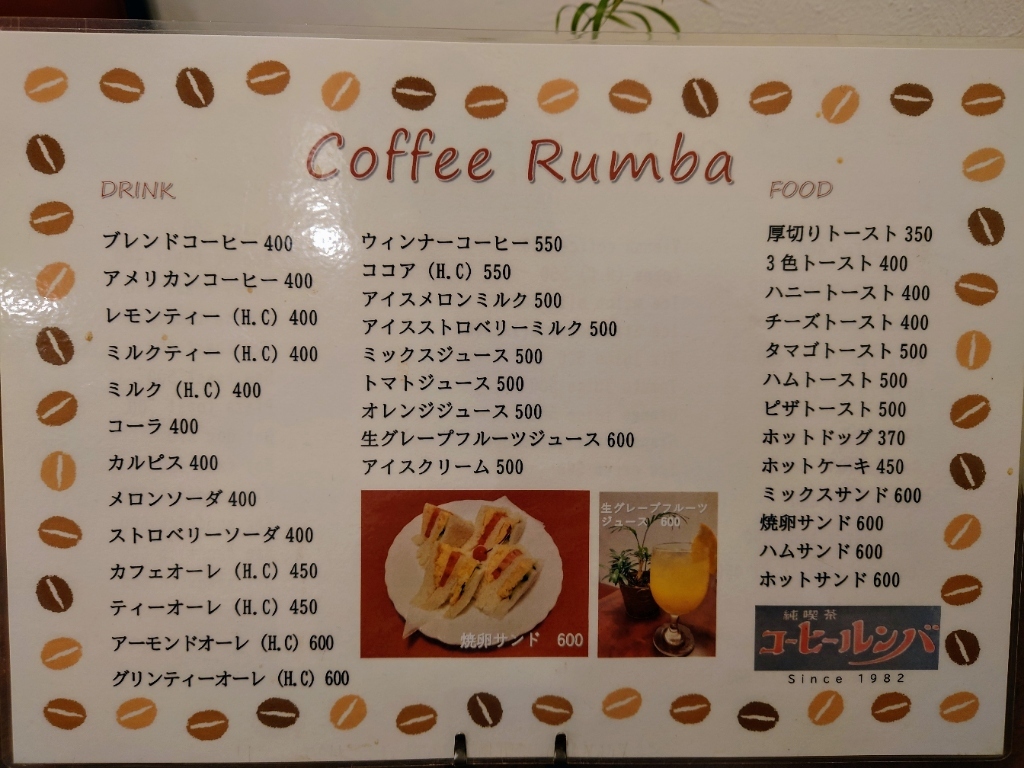 Coffee Rumba
DRINK
ブレンドコーヒー 400
アメリカンコーヒー 400
レモンティー (H.C) 400
ミルクティー (H.C) 400
ミルク (H.C) 400
コーラ 400
カルピス 400
メロンソーダ 400
ストロベリーソーダ 400
カフェオーレ (H.C) 450
ティーオーレ (H.C) 450
アーモンドオーレ (H.C) 600
グリンティーオーレ (H.C) 600
ウィンナーコーヒー 550
ココア (H.C) 550
アイスメロンミルク 500
アイスストロベリーミルク 500
ミックスジュース 500
トマトジュース 500
オレンジジュース 500
生グレープフルーツジュース 600
アイスクリーム 500
焼卵サンド 600
生グレープフルーツ
ジュース 600
FOOD
厚切りトースト 350
3色トースト 400
ハニートースト 400
チーズトースト 400
タマゴトースト 500
ハムトースト 500
ピザトースト 500
ホットドッグ 370
ホットケーキ 450
ミックスサンド 600
焼卵サンド 600
ハムサンド 600
ホットサンド 600
純喫茶
コーヒールンバ
Since 1982